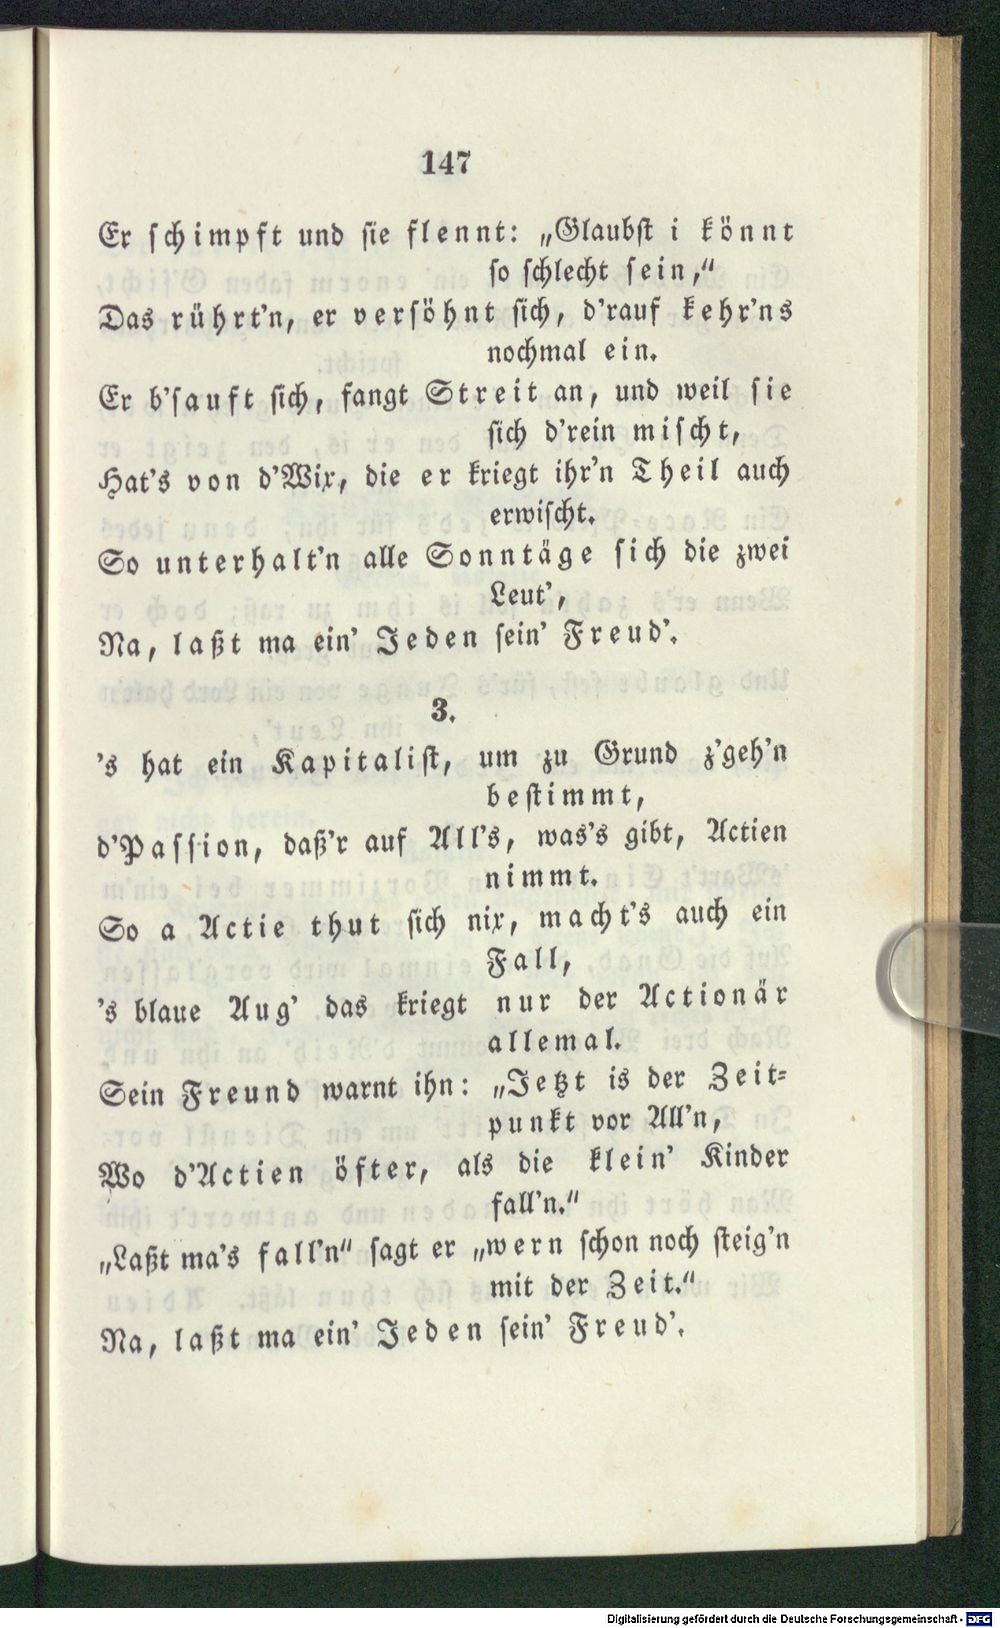 147
Er schimpft und sie flennt: „Glaubst i könnt
so schlecht sein,“
Das rührt'n, er versöhnt sich, d'rauf kehr'ns
nochmal ein.
Er b'sauft sich, fangt Streit an, und weil sie
sich d'rein mischt,
Hat's von d'Wix, die er kriegt ihr'n Theil auch
erwischt.
So unterhalt'n alle Sonntäge sich die zwei
Leut',
Na, laßt ma ein' Jeden sein' Freud'.
3.
's hat ein Kapitalist, um zu Grund z'geh'n
bestimmt,
d'Passion, daß'r auf All's, was's gibt, Actien
nimmt.
So a Actie thut sich nix, macht's auch ein
Fall,
's blaue Aug' das kriegt nur der Actionär
allemal.
Sein Freund warnt ihn: „Jetzt is der Zeit-
punkt vor All'n,
Wo d'Actien öfter, als die klein' Kinder
fall'n.“
„Laßt ma's fall'n“ sagt er „wern schon noch steig'n
mit der Zeit.“
Na, laßt ma ein' Jeden sein' Freud'.
Digitalisierung gefördert durch die Deutsche Forschungsgemeinschaft - DFG